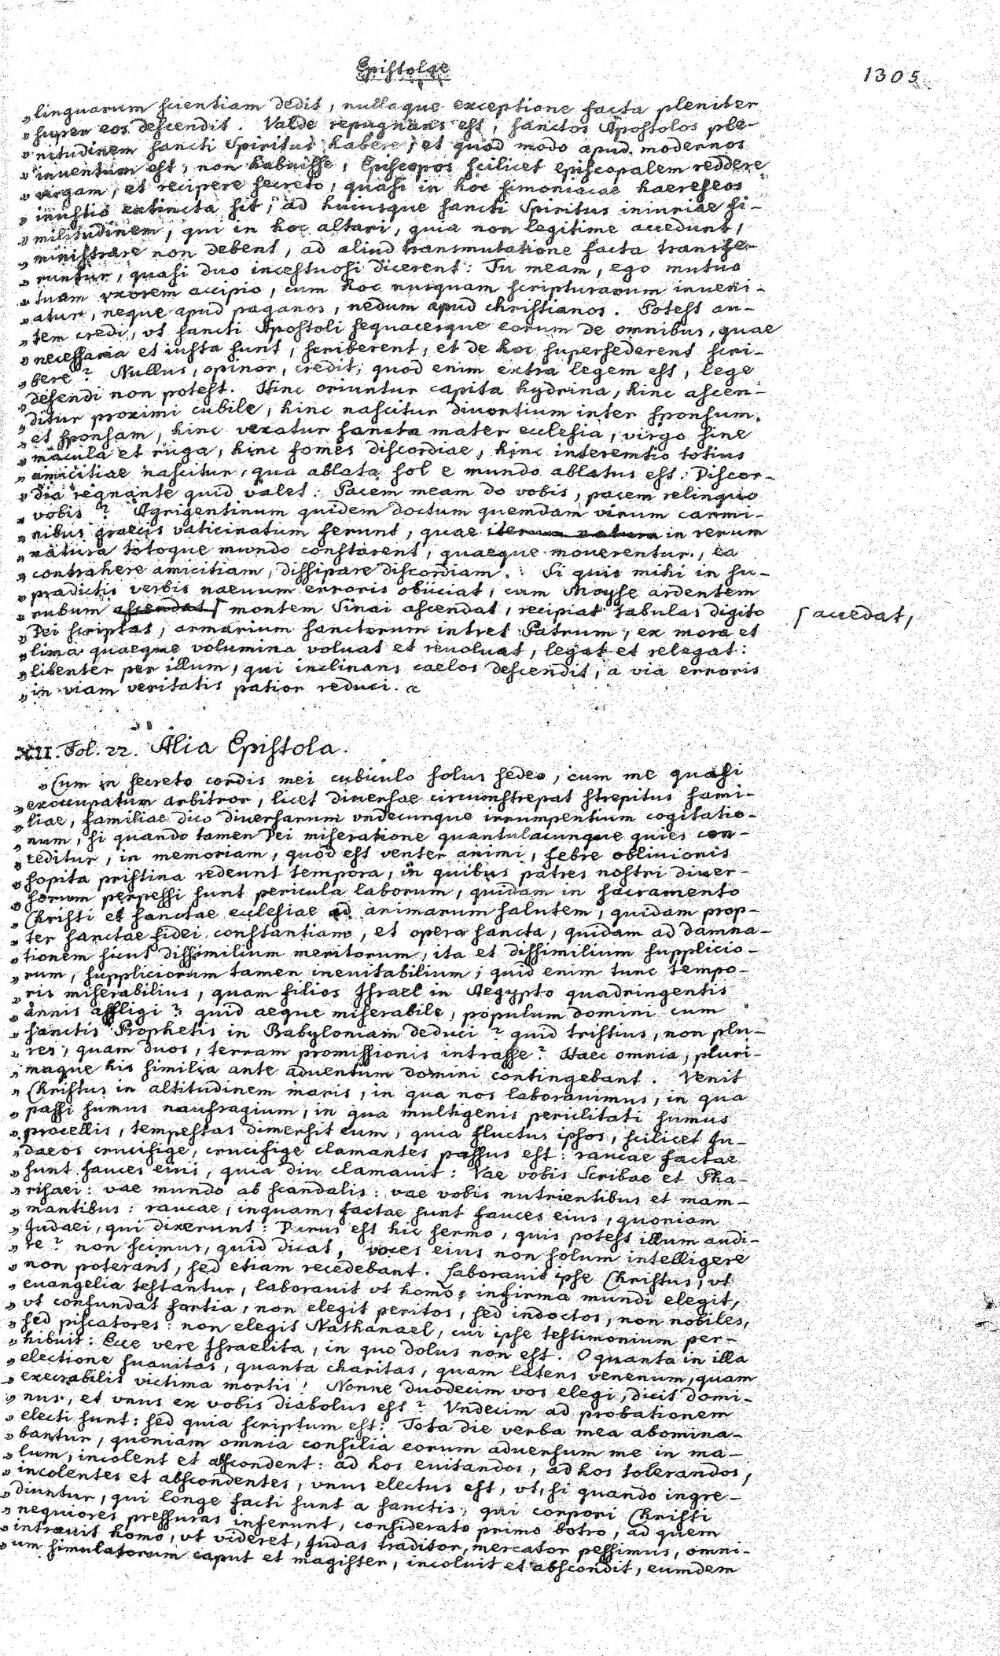 Epistolae
1305
„linguarum scientiam dedit, nullaque exceptione facta pleniter
„super eos descendit. Valde repugnans est, sanctos Apostolos ple-
„nitudinem sancti Spiritus habere, et quod modo apud modernos
„inventum est, non habuisse, Episcopos scilicet episcopalem reddere
„virgam, et recipere secreto, quasi in hoc simoniacae haereseos
„inustio extincta sit, ad huiusque sancti Spiritus iniuriae si-
„militudinem, qui in hoc altari, quia non legitime accedunt,
„ministrare non debent, ad aliud transmutatione facta transfe-
„runtur, quasi duo incestuosi dicerent: Tu meam, ego mutuo
„tuam vxorem accipio, cum hoc nusquam scripturarum inveni-
„atur, neque apud paganos, nedum apud christianos. Potest au-
„tem credi, vt sancti Apostoli sequacesque eorum de omnibus, quae
„necessaria et iusta sunt, scriberent, et de hoc supersederent scri-
„bere? Nullus, opinor, credit; quod enim extra legem est, lege
„defendi non potest. Hinc oriuntur capita hydrina, hinc ascen-
„ditur proximi cubile, hinc nascitur diuortium inter sponsum,
„et sponsam, hinc vexatur sancta mater ecclesia, virgo sine
„macula et ruga, hinc fomes discordiae, hinc interemtio totius
„amicitiae nascitur, qua ablata sol e mundo ablatus est. Discor-
„dia regnante quid valet: Pacem meam do vobis, pacem relinquo
„vobis? Agrigentinum quidem doctum quemdam virum carmi-
„nibus graecis vaticinatum ferunt, quae iterum natura in rerum
„natura totoque mundo constarent, quaeque mouerentur, ea
„contrahere amicitiam, dissipare discordiam. Si quis mihi in su-
„pradictis verbis naeuum erroris obiiciat, cum Moyse ardentem
„rubum ascendat ⌈ montem Sinai ascendat, recipiat tabulas digito
⌈ accedat,
„Dei scriptas, armarium sanctorum intret Patrum, ex mora et
„lima quaeque volumina voluat et reuoluat, legat et relegat:
„libenter per illum, qui inclinans caelos descendit, a via erroris
„in viam veritatis patior reduci.
XII. Fol. 22. Alia Epistola.
„Cum in secreto cordis mei cubiculo solus sedeo, cum me quasi
„exoccupatum arbitror, licet diuersae circumstrepat strepitus fami-
„liae, familiae dico diuersarum vndecunque irrumpentium cogitatio-
„num, si quando tamen Dei miseratione quantulacunque quies con-
„ceditur, in memoriam, quod est venter animi, febre obliuionis
„sopita pristina redeunt tempora, in quibus patres nostri diuer-
„sorum perpessi sunt pericula laborum, quidam in sacramento
„Christi et sanctae ecclesiae ad animarum salutem, quidam prop-
„ter sanctae fidei constantiam, et opera sancta, quidam ad damna-
„tionem sicut dissimilium meritorum, ita et dissimilium supplicio-
„rum, suppliciorum tamen ineuitabilium; quid enim tunc tempo-
„ris miserabilius, quam filios Israel in Aegypto quadringentis
„annis affligi? quid aeque miserabile, populum domini cum
„sanctis Prophetis in Babyloniam deduci? quid tristius, non plu-
„res, quam duos, terram promissionis intrasse? Haec omnia, pluri-
„maque his similia ante aduentum domini contingebant. Venit
„Christus in altitudinem maris, in qua nos laborauimus, in qua
„passi sumus naufragium, in qua multigenis periclitati sumus
„procellis, tempestas dimersit eum, quia fluctus ipsos, scilicet Iu-
„daeos crucifige, crucifige clamantes passus est: raucae factae
„sunt fauces eius, quia diu clamauit: Vae vobis Scribae et Pha-
„risaei: vae mundo ab scandalis: vae vobis nutrientibus et mam-
„mantibus: raucae, inquam, factae sunt fauces eius, quoniam
„Iudaei, qui dixerunt: Durus est hic sermo, quis potest illum audi-
„re? non scimus, quid dicat, voces eius non solum intelligere
„non poterant, sed etiam recedebant. Laborauit ipse Christus, vt
„euangelia testantur, laborauit vt homo; infirma mundi elegit,
„vt confundat fortia, non elegit peritos, sed indoctos, non nobiles,
„sed piscatores: non elegit Nathanael, cui ipse testimonium per-
„hibuit: Ecce vere Israelita, in quo dolus non est. O quanta in illa
„electione suauitas, quanta charitas, quam latens venenum, quam
„execrabilis victima mortis! Nonne duodecim vos elegi, dicit domi-
„nus, et vnus ex vobis diabolus est? Vndecim ad probationem
„electi sunt: sed quia scriptum est: Tota die verba mea abomina-
„bantur, quoniam omnia consilia eorum aduersum me in ma-
„lum, incolent et abscondent: ad hos euitandos, ad hos tolerandos,
„incolentes et abscondentes, vnus electus est, vt, si quando ingre-
„diuntur, qui longe facti sunt a sanctis, qui corpori Christi
„nequiores pressuras inferunt, considerato primo botro, ad quem
„intrauit homo, vt videret, Iudas traditor, mercator pessimus, omni-
„um simulatorum caput et magister, incoluit et abscondit, eumdem